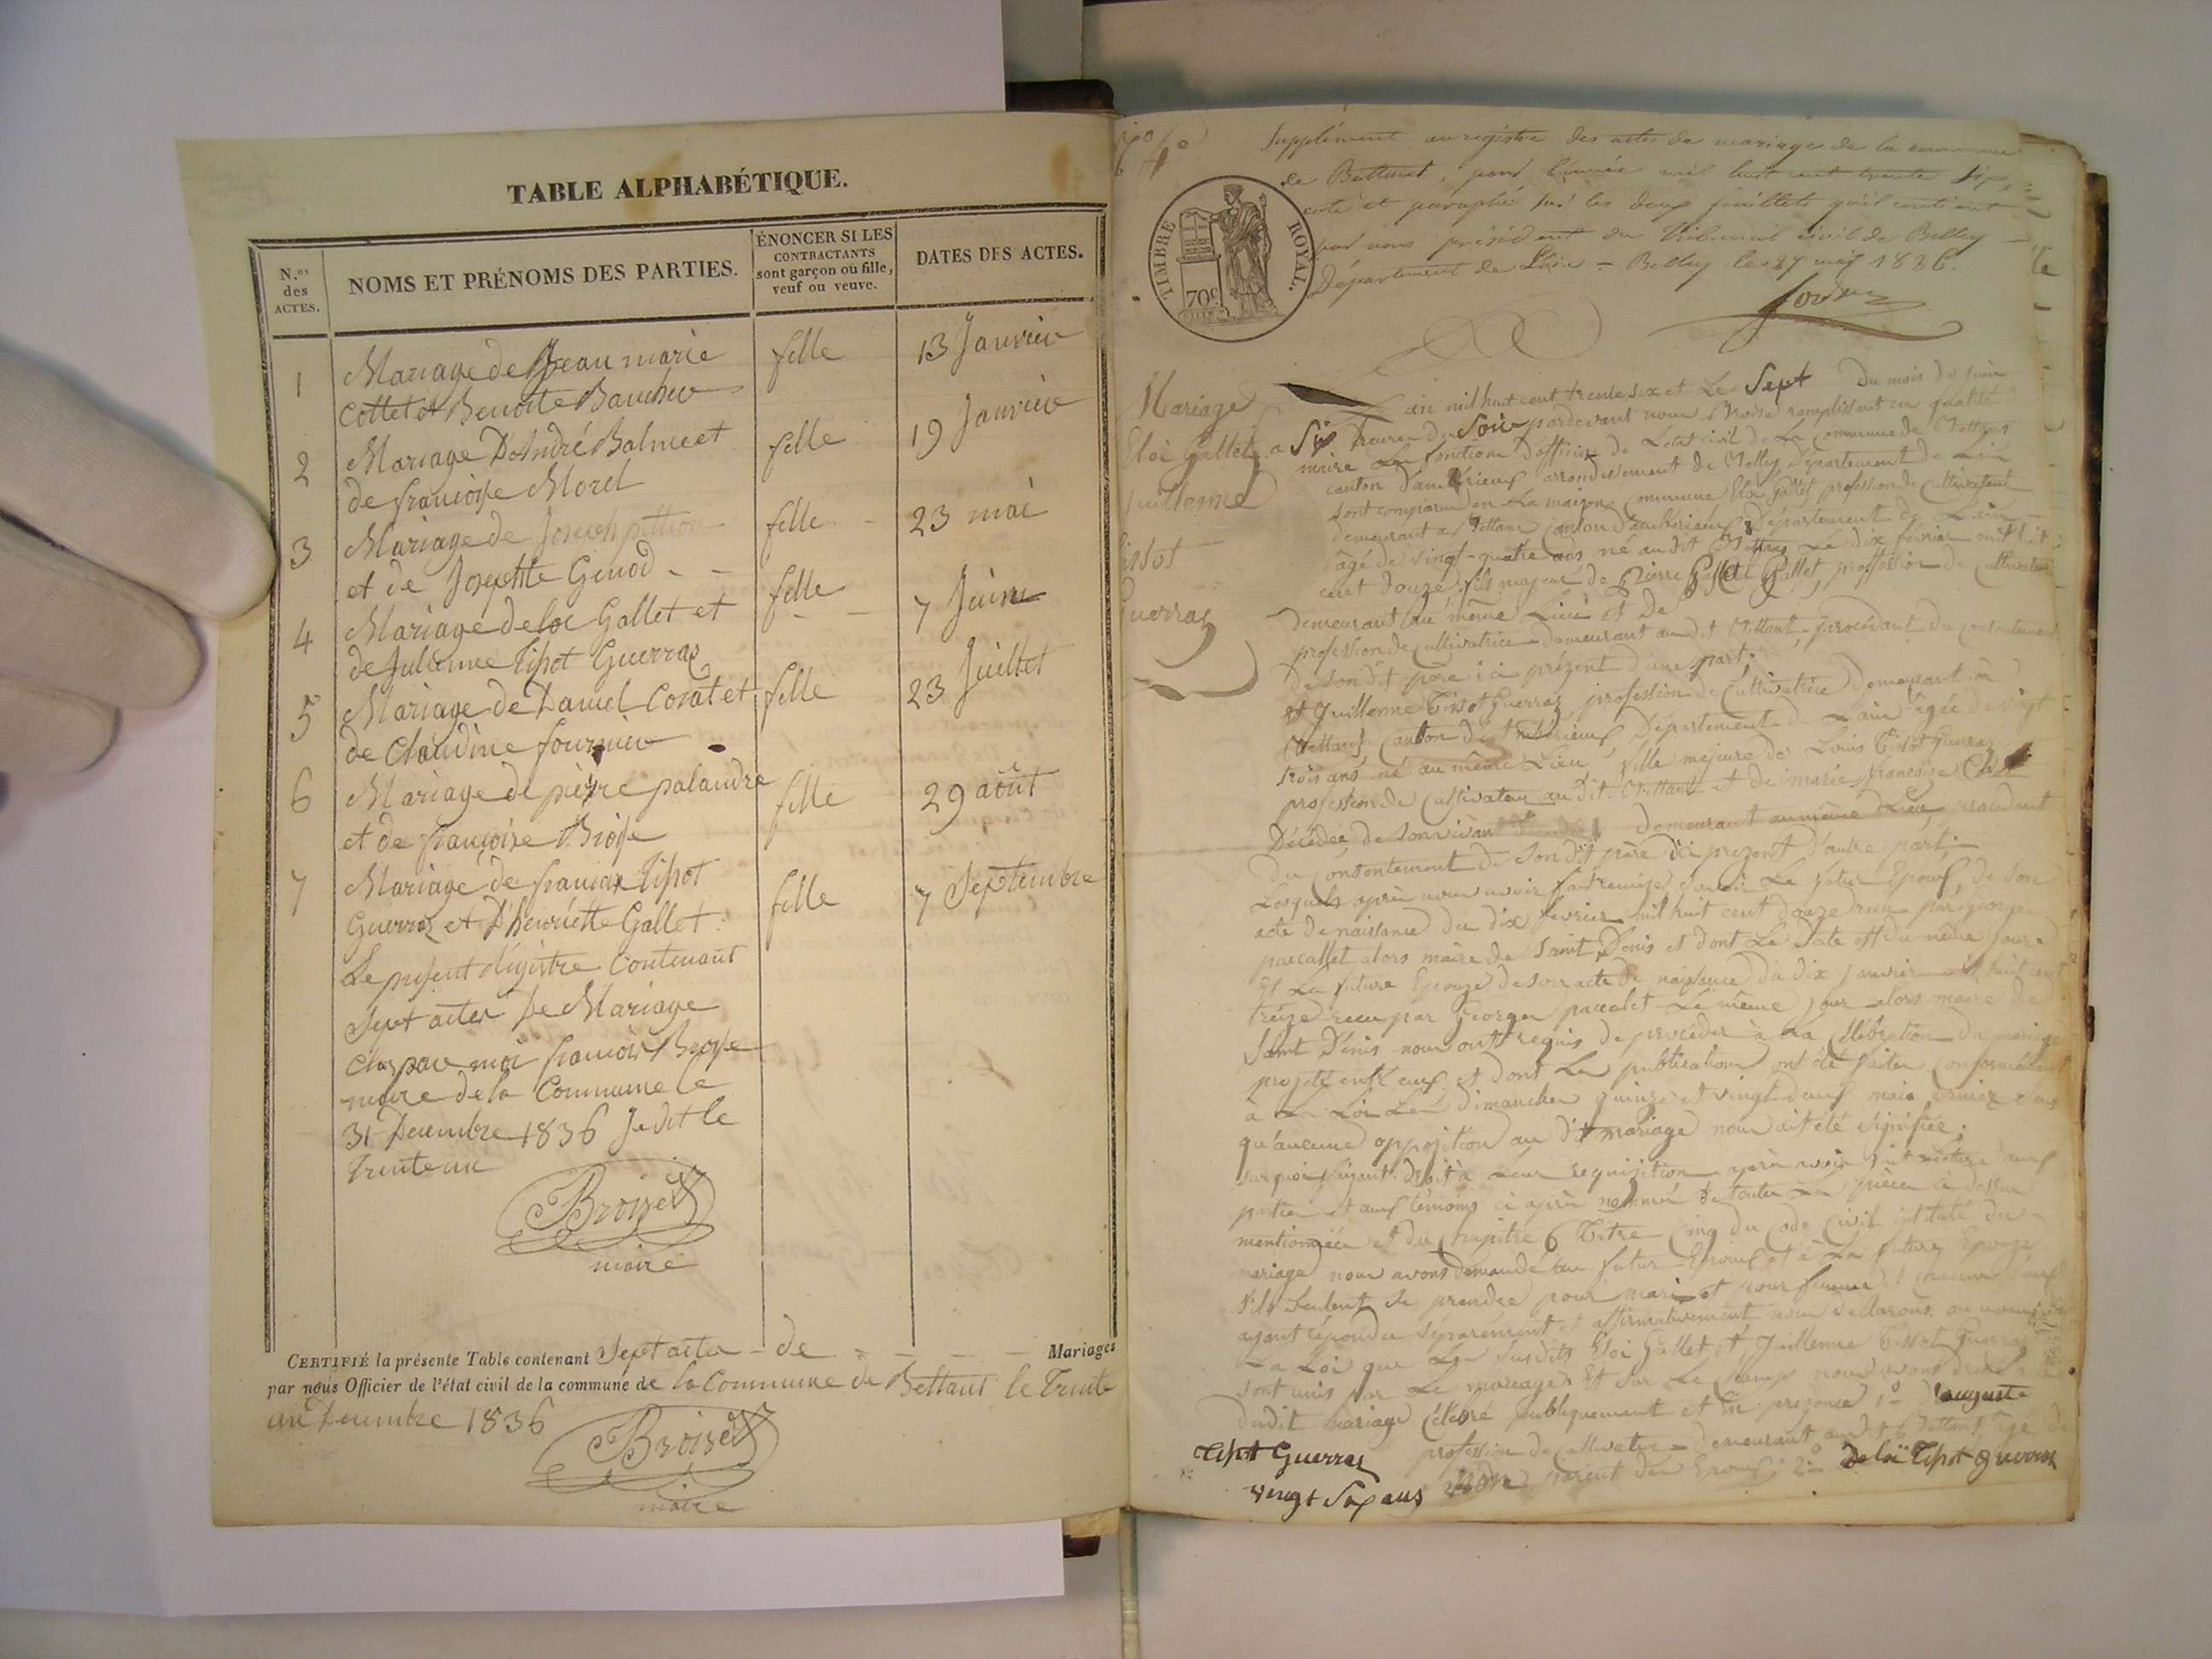 TABLE ALPHABÉTIQUE.
N.os des ACTES.
NOMS ET PRÉNOMS DES PARTIES.
ÉNONCER SI LES CONTRACTANTS sont garçon ou fille, veuf ou veuve.
DATES DES ACTES.
1 Mariage de Jean marie fille 13 Janvier
Cottet et Benoite
2 Mariage D'André Balme et fille 19 Janvier
de françoise Morel
3 Mariage de Joseph pittion fille 23 mai
et de Josephte Genod
4 Mariage deloi Gallet et fille 7 Juin
de Julienne Tissot Guerraz
5 Mariage de Daniel et fille 23 Juillet
de Claudine fournier
6 Mariage de pierre palandre fille 29 août
et de françoise Broise
7 Mariage de françois Tissot fille 7 Septembre
Guerraz et D'henriette Gallet.
Le présent Régistre Contenant
Sept actes De Mariage
Clos par moi françois Broise
maire de la Commune le
31 Decembre 1836 Je dit le
Trente un
Broise
maire
CERTIFIÉ la présente Table contenant Sept actes - de - - - Mariages
par nous Officier de l'état civil de la commune de la Commune de Bettant le Trente
un Decembre 1836
Broise
maire
Supplément au registre des actes de mariage de la commune
de Bettant, pour l'année mil huit cent trente six,
coté et paraphé sur les deux feuillets qu'il contient
par nous président du tribunal civil de Belley
Département de l'Ain = Belley le 27 mai 1836.
TIMBRE ROYAL.
70c
Mariage
Eloi Gallet
Juillenne
Tissot
Guerraz
L'an mil huit cent trente six et Le Sept Du mois de Juin
a Six heures du Soir pardevant nous Broise remplissant en qualité
maire La fonction d'officier de Létat civil de La Commune de Bettant
canton d'ambérieux arrondissement de Belley Département de Lain
Sont comparu en La maison Commune Eloi Gallet profession de Cultivateur
demeurant a Bettant Canton d'ambérieux Département de Lain
âgé de vingt-quatre ans né au dit Bettant Le dix février mil huit
cent douze fils majeur de Pierre Gallet profession de Cultivateur
demeurant au même Lieu et De
profession de Cultivatrice demeurant au dit Bettant procédant du consentement
de son dit père ici présent d'une part;
et Juillenne Tissot Guerraz profession de Cultivatrice Demeurant à
Bettant Canton d'ambérieux Département de Lain âgée de vingt
trois ans né au même Lieu fille majeure de Louis Tissot Guerraz
profession de Cultivateur au Dit Bettant et de marie françoise
Décédée de Son vivant demeurant au même Lieu procédant
du Consentement de Son dit père ici présent d'autre part;
Lesquels après nous avoir fait remise savoir Le futur Epoux de Son
acte de naissance du dix fevrier mil huit cent douze reçu par george
paccallet alors maire de Saint Denis et dont La Date est du même jour
Et La future Epouze de son acte de naissance du dix janvier mil huit cent
treize reçu par George paccalet Le même jour alors maire de
Saint Denis nous ont requis de procéder à La Célébration du mariage
projeté entre eux et dont Les publications ont été faites Conformément
a La Loi Les dimanches quinze et vingt deux mai dernier sans
qu'aucune opposition au dit mariage nous ait été Signifiée;
Sur quoi faisant droit à Leur requisition après avoir fait lecture aux
parties et aux témoins ci après nommé de toutes Les pièces ci dessus
mentionnées et du Chapitre 6 Titre Cinq du Code Civil intitulé du
mariage nous avons demandé au futur Epoux et à La future Epouze
S'ils veulent Se prendre pour mari et pour femme Chacun d'eux
ayant répondu Séparément et affirmativement nous déclarons au nom de
La Loi que Les Susdits Eloi Gallet et Juillenne Tissot Guerraz
Sont unis par Le mariage Et Sur Le Champ nous avons dressé acte
Dudit mariage Célébré publiquement et En présence 1° D'auguste
Tissot Guerraz profession de Cultivateur demeurant audit Bettant âgé de
vingt Six ans parent des Epoux; 2° Deloi Tissot guerraz